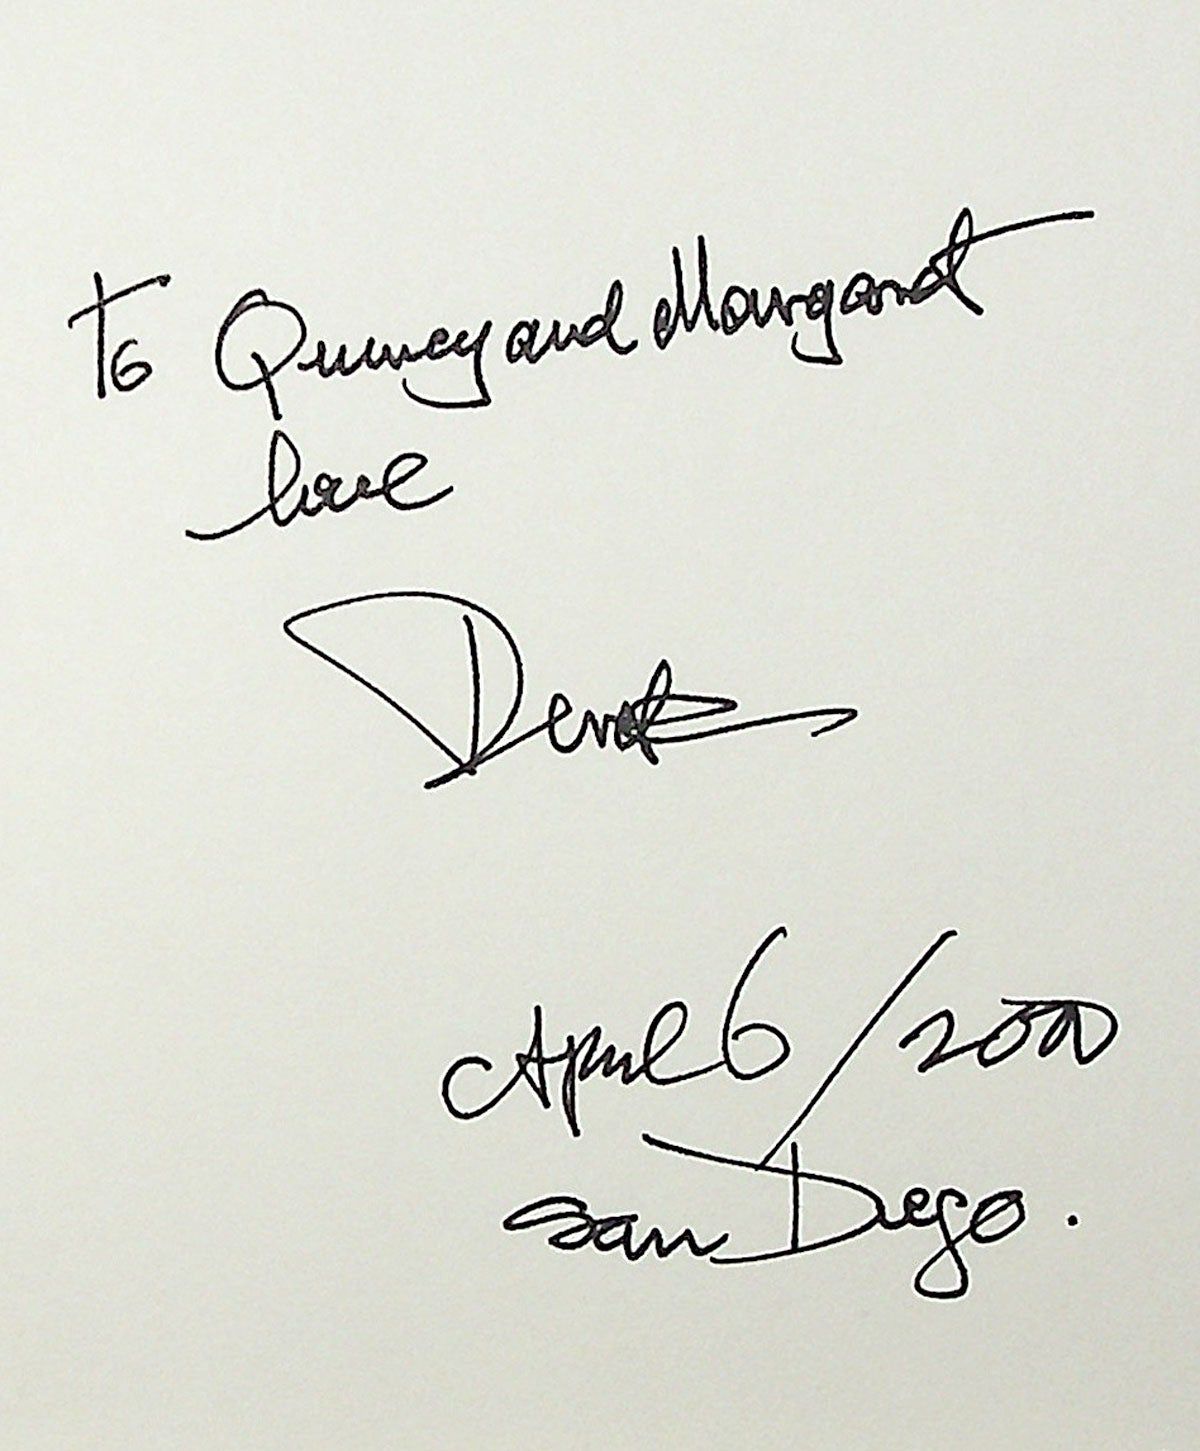 To Quincy and Margaret
love
Derek
April 6/2000
San Diego.